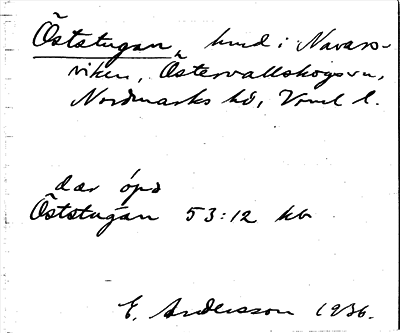 Öststugan, hmd i Navars-
viken, Östervallskogs sn,
Nordmarks hd, Vrml l.
där öpd
Öststugan 53:12 kb
E. Andersson 1936.